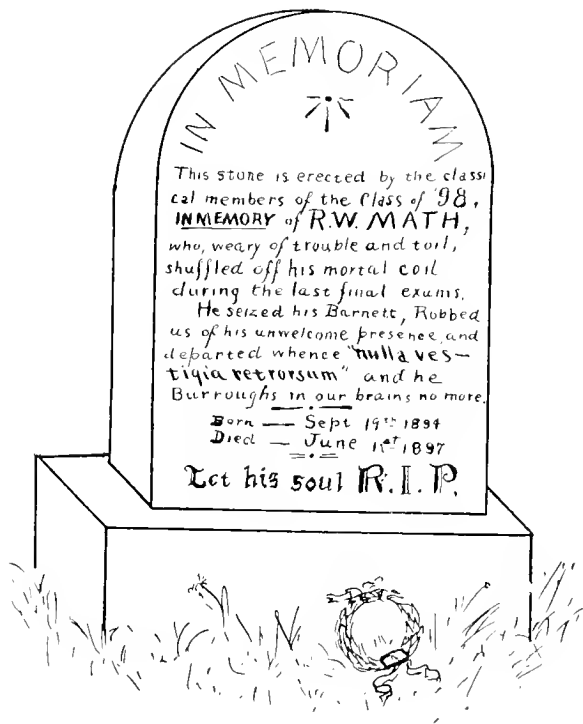 IN MEMORIAM
This stone is erected by the classi
cal members of the Class of '98,
IN MEMORY of R.W. MATH,
who, weary of trouble and toil,
shuffled off his mortal coil
during the last final exams.
He seized his Barnett, Robbed
us of his unwelcome presence, and
departed whence "nulla ves-
tigia retrorsum" and he
Burroughs in our brains no more.
Born — Sept 19th 1894
Died — June 1897
Let his soul R.I.P.